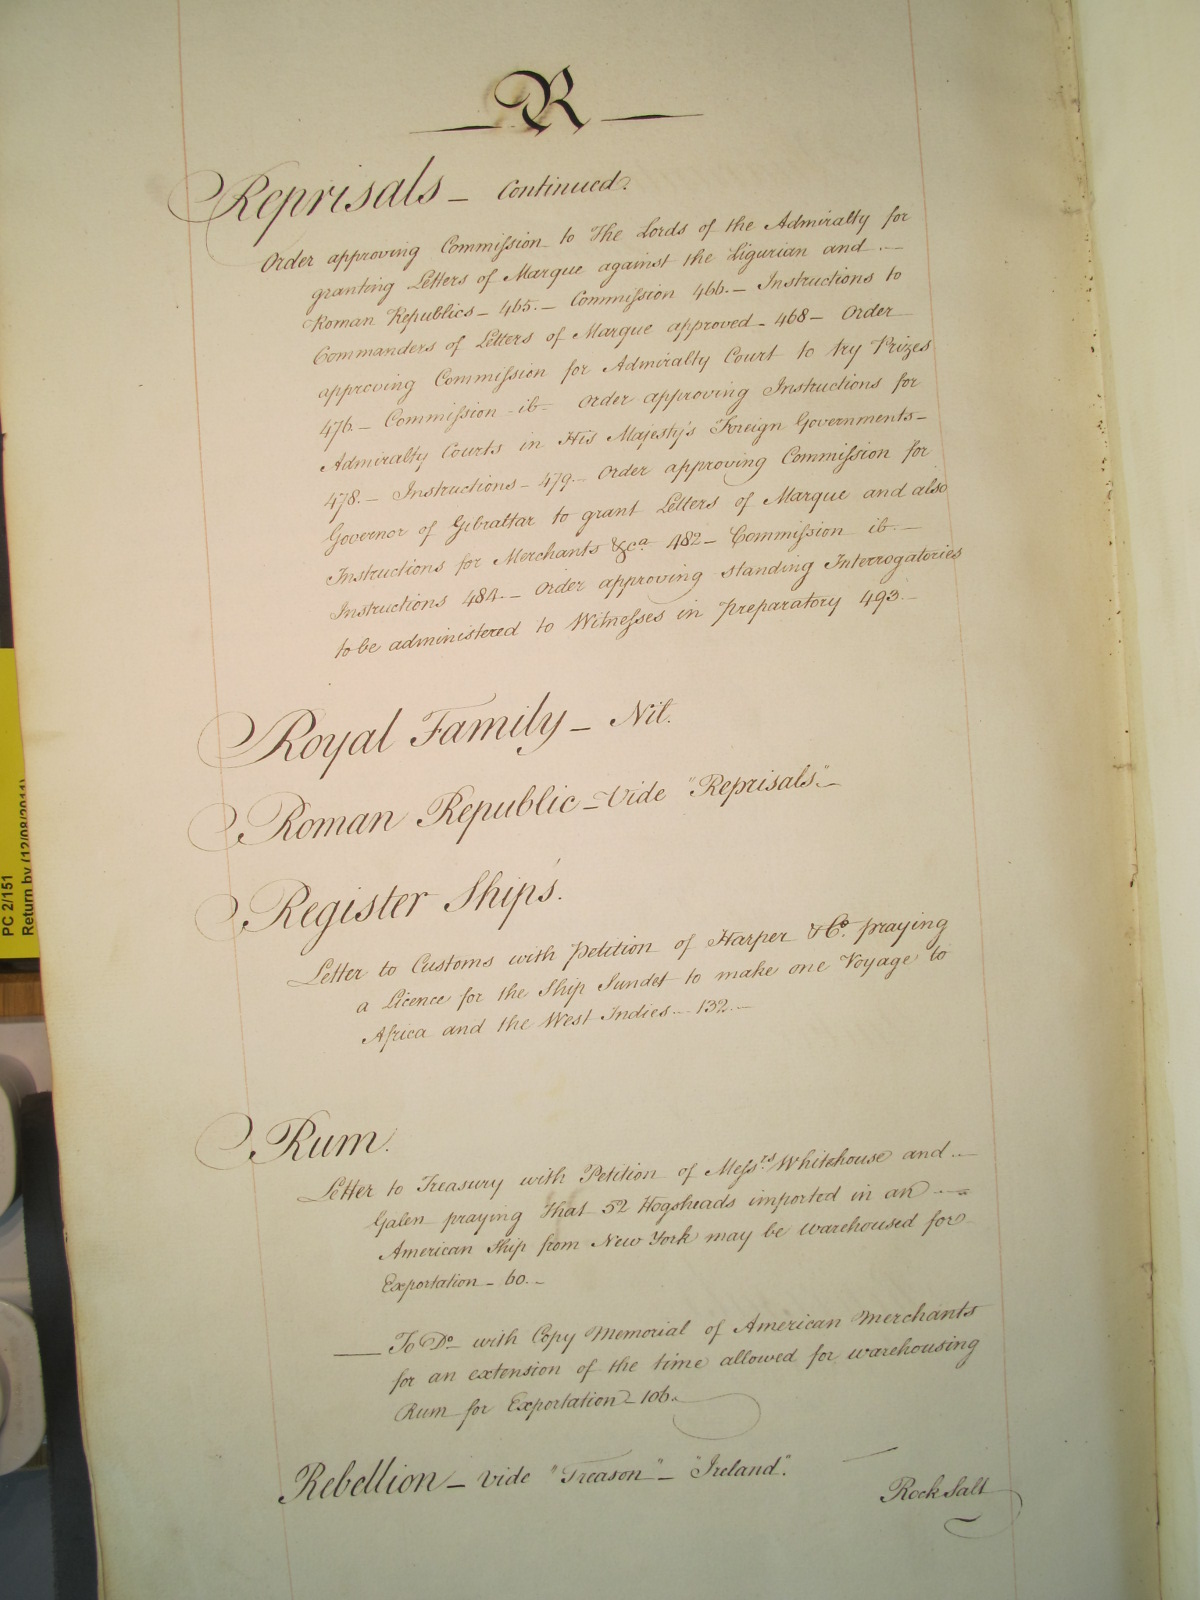 R
Reprisals — Continued.
Order approving Commission to The Lords of the Admiralty for
granting Letters of Marque against the Ligurian and —
Roman Republics — 465. — Commission 466. — Instructions to
Commanders of Letters of Marque approved — 468 — Order
approving Commission for Admiralty Court to try Prizes
476. — Commission — ib — Order approving Instructions for
Admiralty Courts in His Majesty's Foreign Governments —
478. — Instructions — 479. — Order approving Commission for
Governor of Gibraltar to grant Letters of Marque and also
Instructions for Merchants &ca 482 — Commission ib. —
Instructions 484. — Order approving standing Interrogatories
to be administered to Witnesses in preparatory 493. —
Royal Family — Nil.
Roman Republic — Vide "Reprisals" —
Register Ships.
Letter to Customs with Petition of Harper & Co. praying
a Licence for the Ship Sundet to make one Voyage to
Africa and the West Indies — 132 —
Rum.
Letter to Treasury with Petition of Messrs. Whitehouse and —
Galen praying that 52 Hogsheads imported in an —
American Ship from New York may be warehoused for
Exportation — 60. —
— To Do. with Copy Memorial of American Merchants
for an extension of the time allowed for warehousing
Rum for Exportation — 106.
Rebellion — vide "Treason" — "Ireland".
Rock Salt
PC 2/151
Return by (12/08/2011)